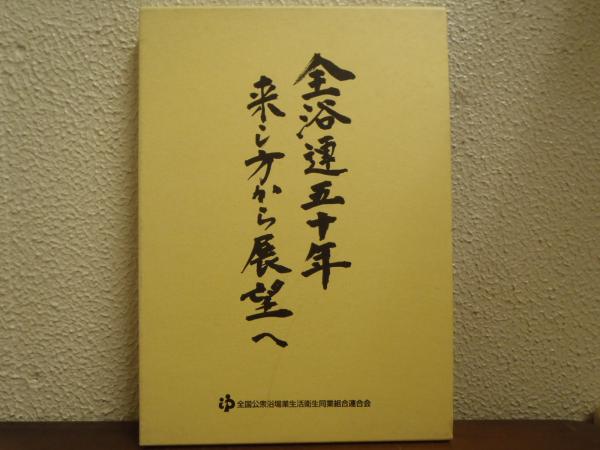 全浴連五十年
来し方から展望へ
ゆ 全国公衆浴場業生活衛生同業組合連合会